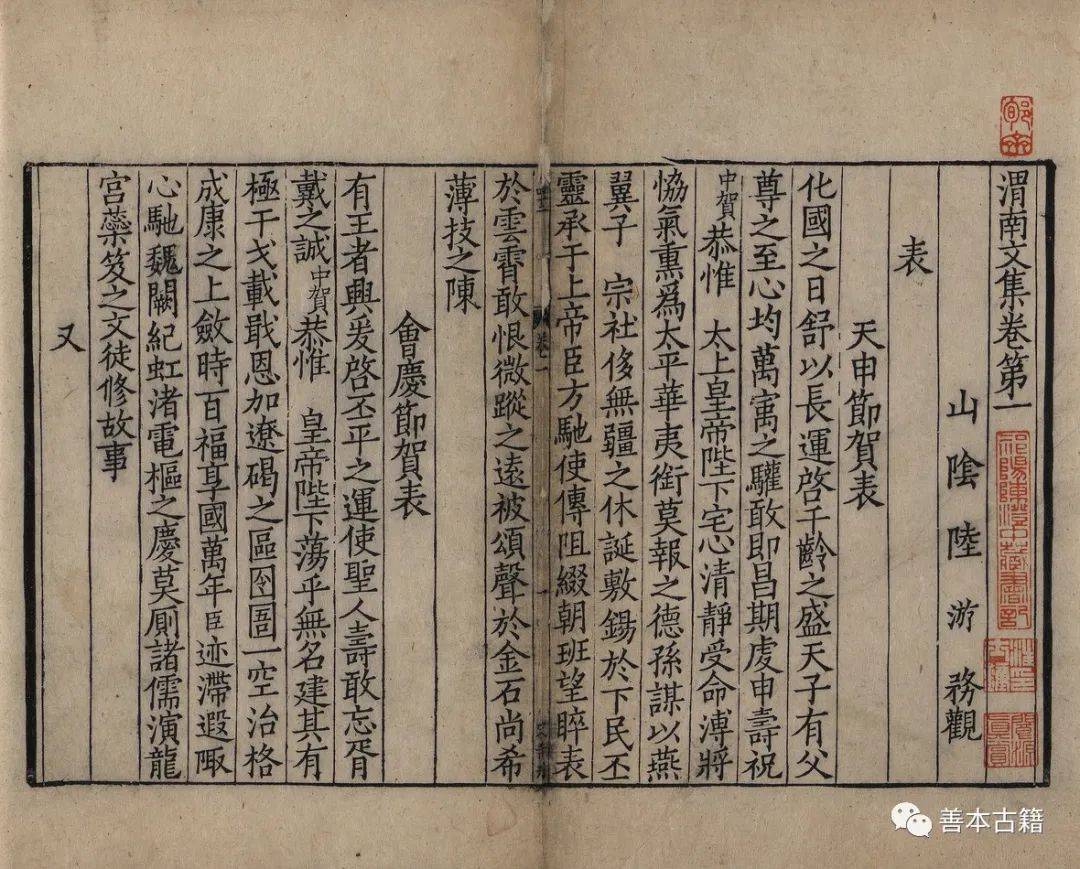 渭南文集卷第一
山陰陸游務觀
表
天申節賀表
化國之日舒以長運啓千齡之盛天子有父
尊之至心均萬㝢之驩敢即昌期虔申壽祝
中賀恭惟 太上皇帝陛下宅心清靜受命溥將
恊氣熏爲太平華夷衔莫報之德孫謀以燕
翼子 宗社侈無疆之休誕敷錫於下民丕
靈承于上帝臣方馳使傳阻綴朝班望睟表
於雲霄敢恨微蹤之遠被頌聲於金石尚希
薄技之陳
會慶節賀表
有王者興爰啓丕平之運使聖人壽敢忘胥
戴之誠中賀恭惟 皇帝陛下蕩乎無名建其有
極干戈載戢恩加遼碣之區囹圄一空治格
成康之上斂時百福享國萬年臣迹滯遐陬
心馳魏闕紀虹渚電樞之慶莫厠諸儒演龍
宮蘂笈之文徒修故事
又
卷一
一
祁陽陳澄中藏書記
善本古籍